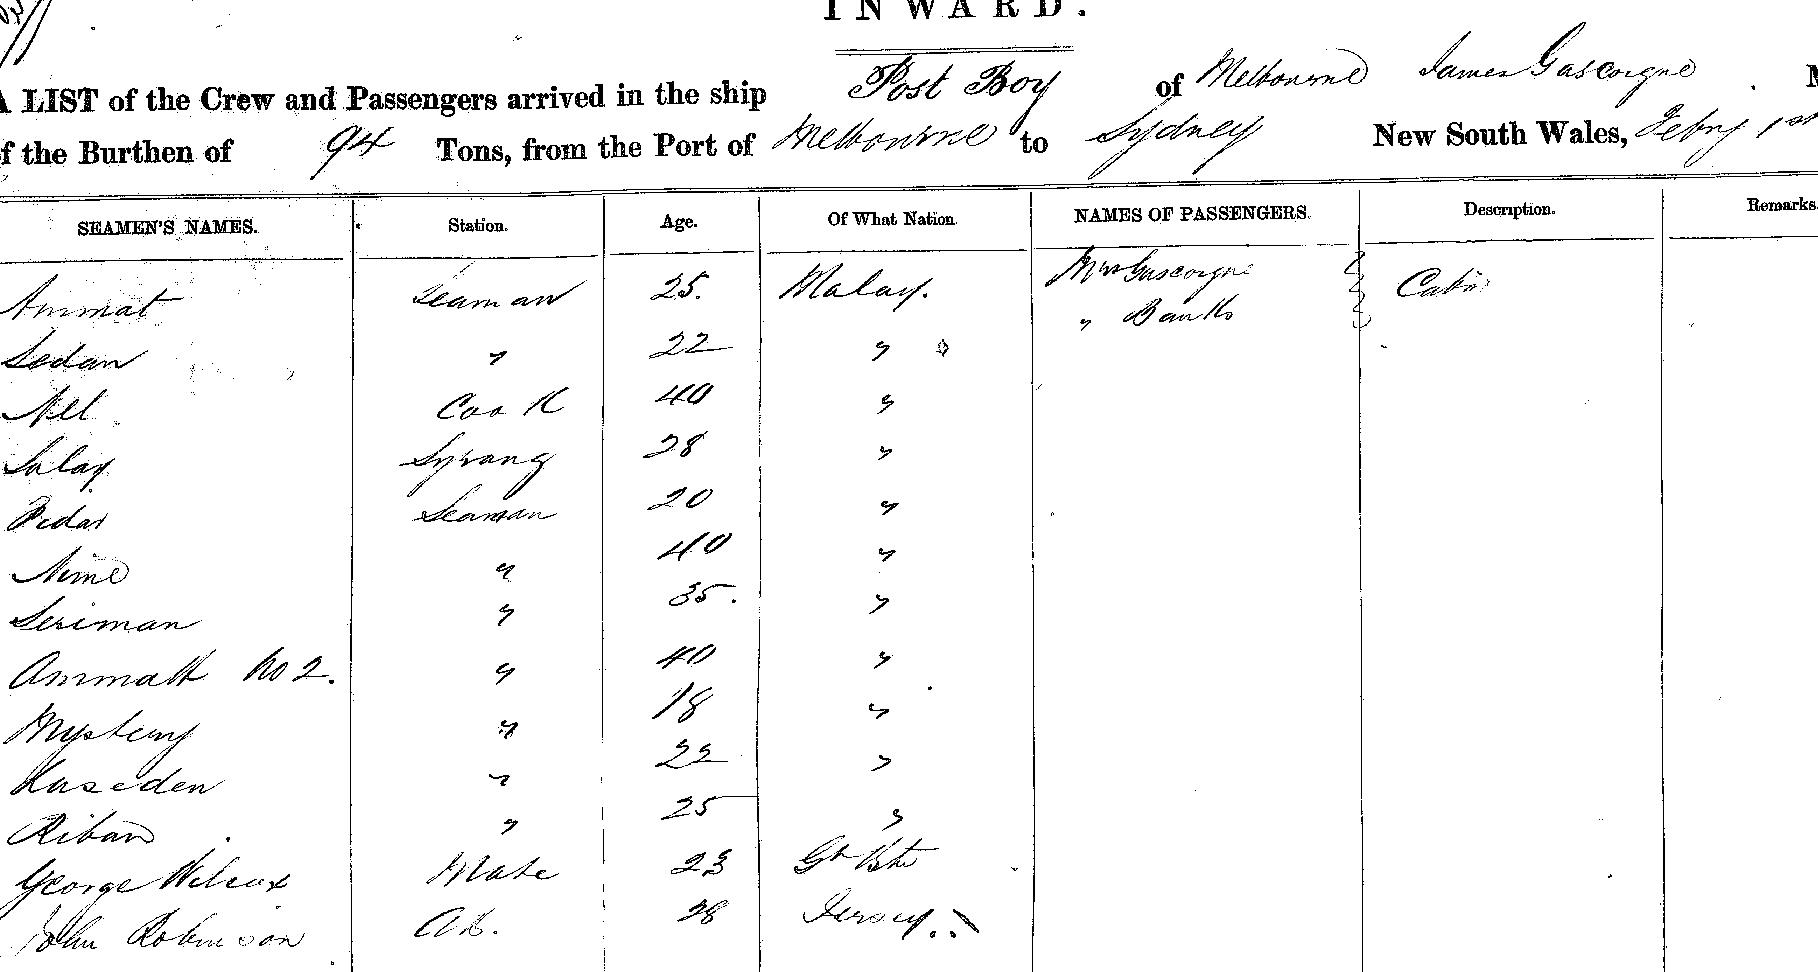 INWARD.
A LIST of the Crew and Passengers arrived in the ship Post Boy of Melbourne James Gascoigne
of the Burthen of 94 Tons, from the Port of Melbourne to Sydney New South Wales, Febry 1st
SEAMEN'S NAMES. Station. Age. Of What Nation. NAMES OF PASSENGERS. Description. Remarks.
Ammat Seaman 25. Malay. Mrs Gascoigne Cabin
" Banks
Sedan " 22 "
Nel Cook 40 "
Salay Syrang 28 "
Pedar Seaman 20 "
Nime " 40 "
Seriman " 35. "
Ammatt No 2. " 40 "
Mystery " 18 "
Kaseden " 22 "
Riban " 25 "
George Wilcox Mate 23 Gt Btn
John Robinson AB. 28 Jersey.